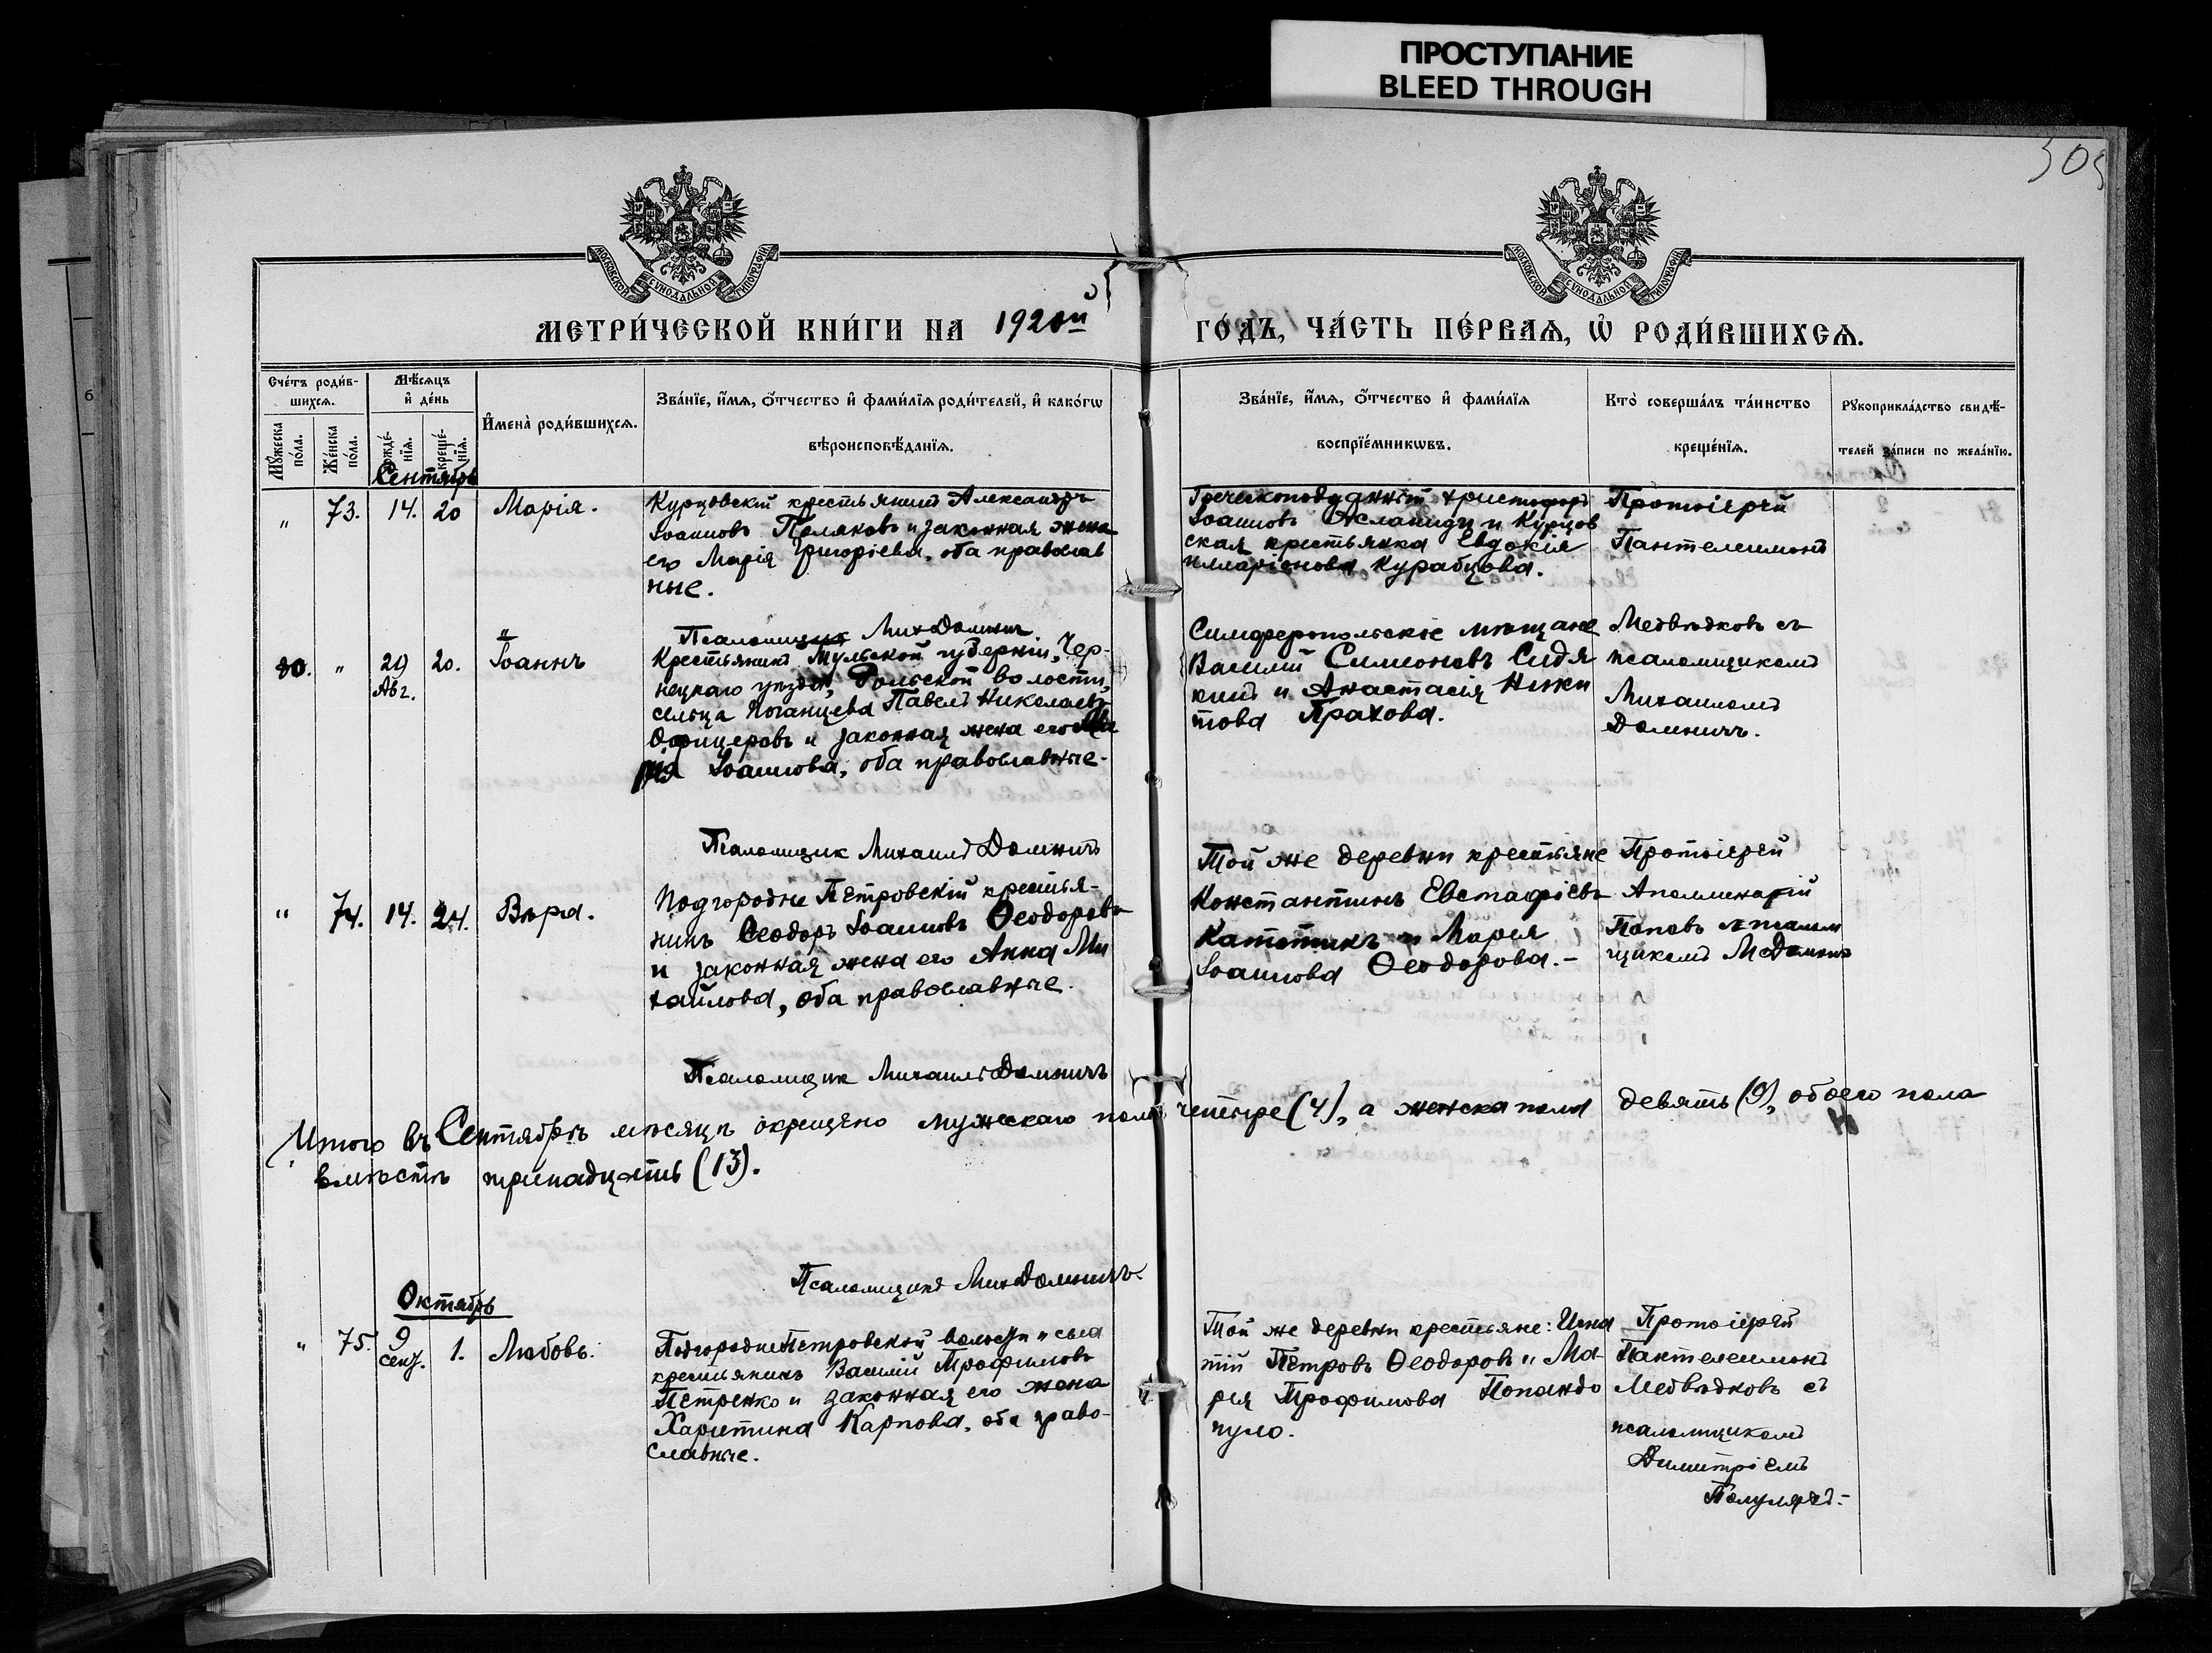 ПРОСТУПАНИЕ
BLEED THROUGH
305
МОСКОВСКОЙ СѴНОДАЛЬНОЙ ТИПОГРАФІИ
МОСКОВСКОЙ СѴНОДАЛЬНОЙ ТИПОГРАФІИ
МЕТРИ́ЧЕСКОЙ КНИ́ГИ НА 1920й ГО́ДЪ, ЧА́СТЬ ПЕ́РВАѦ, Ѽ РОДИ́ВШИХСѦ.
Сче́тъ роди́в-
шихсѧ.
Мꙋ́жеска по́ла.
Же́нска по́ла.
Мѣ́сѧцъ
и҆ де́нь
рожде́-нїѧ.
креще́-нїѧ.
И҆мена̀ роди́вшихсѧ.
Зва́нїе, и҆́мѧ, ѻ҆́тчество и҆ фами́лїѧ роди́телей, и҆ како́гѡ
вѣроисповѣ́данїѧ.
Зва́нїе, и҆́мѧ, ѻ҆́тчество и҆ фами́лїѧ
воспрїе́мникѡвъ.
Кто̀ соверша́лъ та́инство
креще́нїѧ.
Рꙋкоприкла́дство свидѣ́-
телей за́писи по жела́нїю.
Сентябрь
" 73. 14. 20 Марія.
Курцовскій крестьянинъ Александръ
Іоанновъ Поляковъ и законная жена
его Марія Григоріева, оба православ
ные.
Греческоподданный Христофоръ
Іоанновъ Асланиди и Курцов
ская крестьянка Евдокія
Илларіонова Курабцова.
Протоіерей
Пантелеимонъ
Псаломщик Мих Домничъ
80. " 29 Авг. 20. Іоаннъ
Крестьянинъ Тульской губерніи, Чер-
нецкаго уѣзда, волости,
сельца Поганцева Павелъ Николаевъ
и законная жена его Ма
рія Іоаннова, оба православные.
Симферопольскіе мѣщане
Василій Симоновъ Сидя
кинъ и Анастасія Ники
това Прахова.
Медвѣдковъ съ
псаломщикомъ
Михаиломъ
Домничъ.
Псаломщик Михаилъ Домничъ
" 74. 14. 24. Вѣра.
Подгородне Петровскій крестья-
нинъ Ѳеодоръ Іоанновъ Ѳеодоровъ
и законная жена его Анна Ми
хайлова, оба православные.
Той же деревни крестьяне
Константинъ Евстафіевъ
и Марія
Іоаннова Ѳеодорова.-
Протоіерей
Аполлинарій
Поповъ с псалом
щикомъ М Домничъ
Псаломщик Михаилъ Домничъ
Итого въ Сентябрѣ мѣсяцѣ окрещено мужескаго пола четыре (4), а женска пола девять (9), обоего пола
вмѣстѣ тринадцать (13).
Псаломщикъ Мих Домничъ.
Октябрь
" 75. 9 сент. 1. Любовь.
Подгородне Петровской волости и села
крестьянинъ Василій Трофимовъ
Петренко и законная его жена
Харитина Карпова, оба право-
славные.
Той же деревни крестьяне: Игна
тій Петровъ Ѳеодоровъ и Ма-
рія Трофимова Попандо
пуло.
Протоіерей
Пантелеимонъ
Медвѣдковъ съ
псаломщикомъ
Димитріемъ